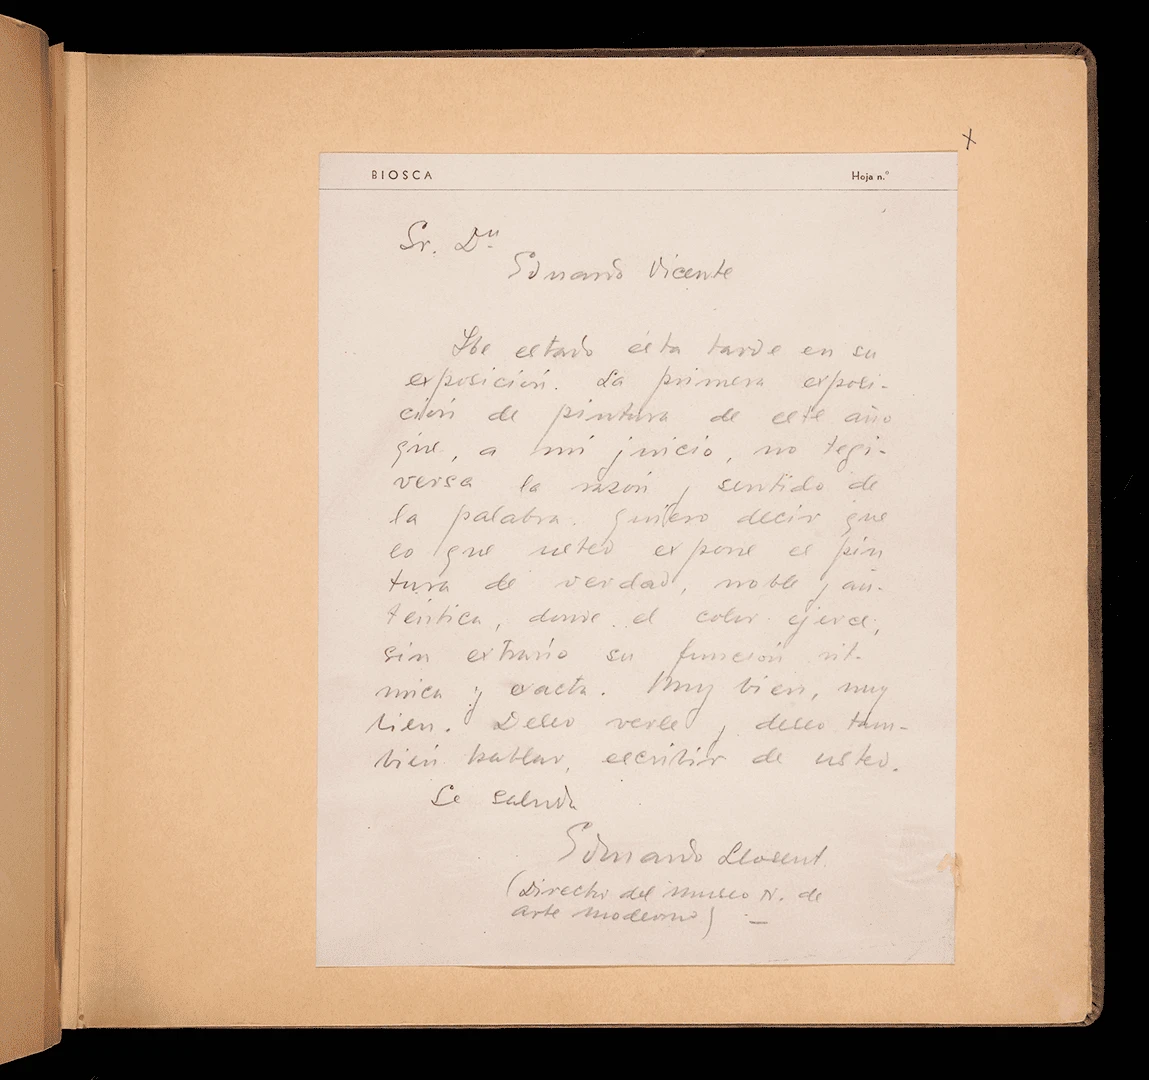 BIOSCA
Hoja n.º
Sr. Dn
Eduardo Vicente
He estado ésta tarde en su
exposición. La primera exposi-
ción de pintura de este año
que, a mi juicio, no tegi-
versa la razón y sentido de
la palabra. Quiero decir que
lo que usted expone es pin
tura de verdad, noble y au-
téntica, donde el color ejerce,
sin extravio su función rit-
mica y exacta. Muy bien, muy
bien. Deseo verle y deseo tam-
bién hablar, escribir de usted.
Le saluda
Eduardo Llosent
(Director del museo N. de
arte moderno)